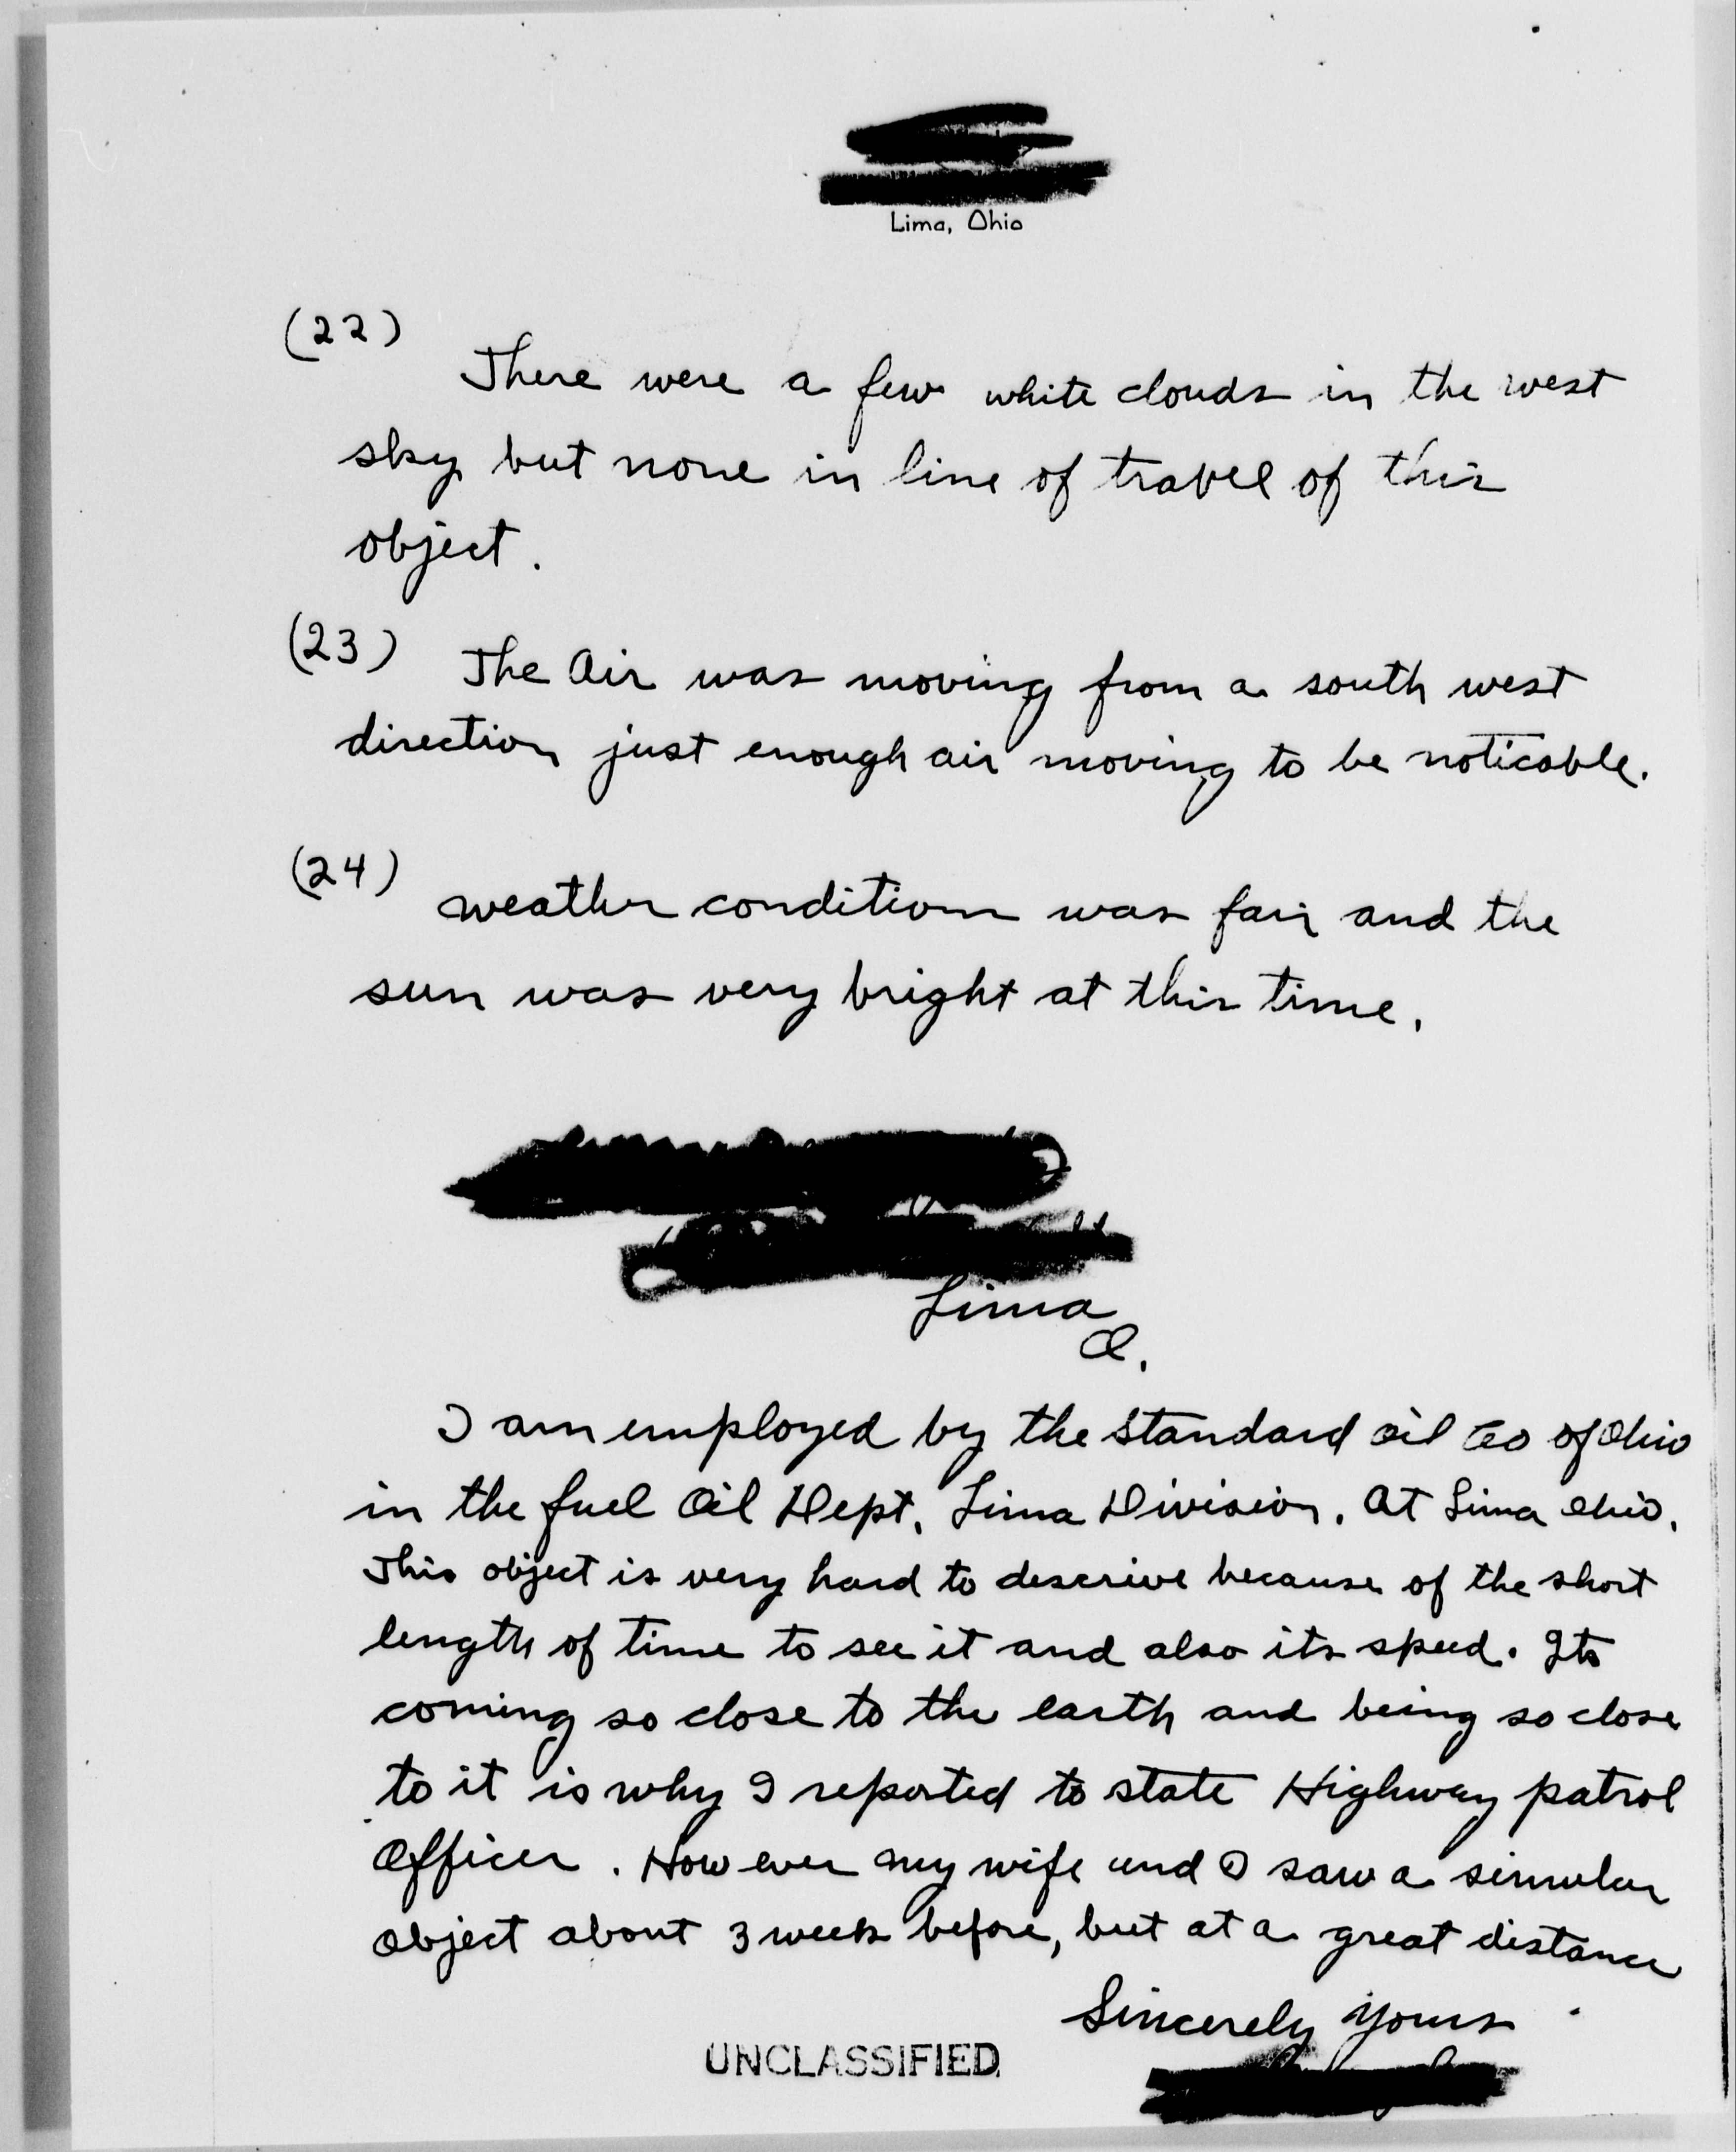 Lima, Ohio
(22)
There were a few white clouds in the west
sky but none in line of travel of this
object.
(23) The Air was moving from a south west
direction just enough air moving to be noticable.
(24)
weather conditions was fair and the
sun was very bright at this time.
Lima
O.
I am employed by the Standard Oil Co of Ohio
in the fuel Oil Dept, Lima Division. At Lima Ohio.
This object is very hard to descrive because of the short
length of time to see it and also its speed. Its
coming so close to the earth and being so close
to it is why I reported to state Highway patrol
Officer. However my wife and I saw a simular
object about 3 week before, but at a great distance
Sincerely Yours
UNCLASSIFIED